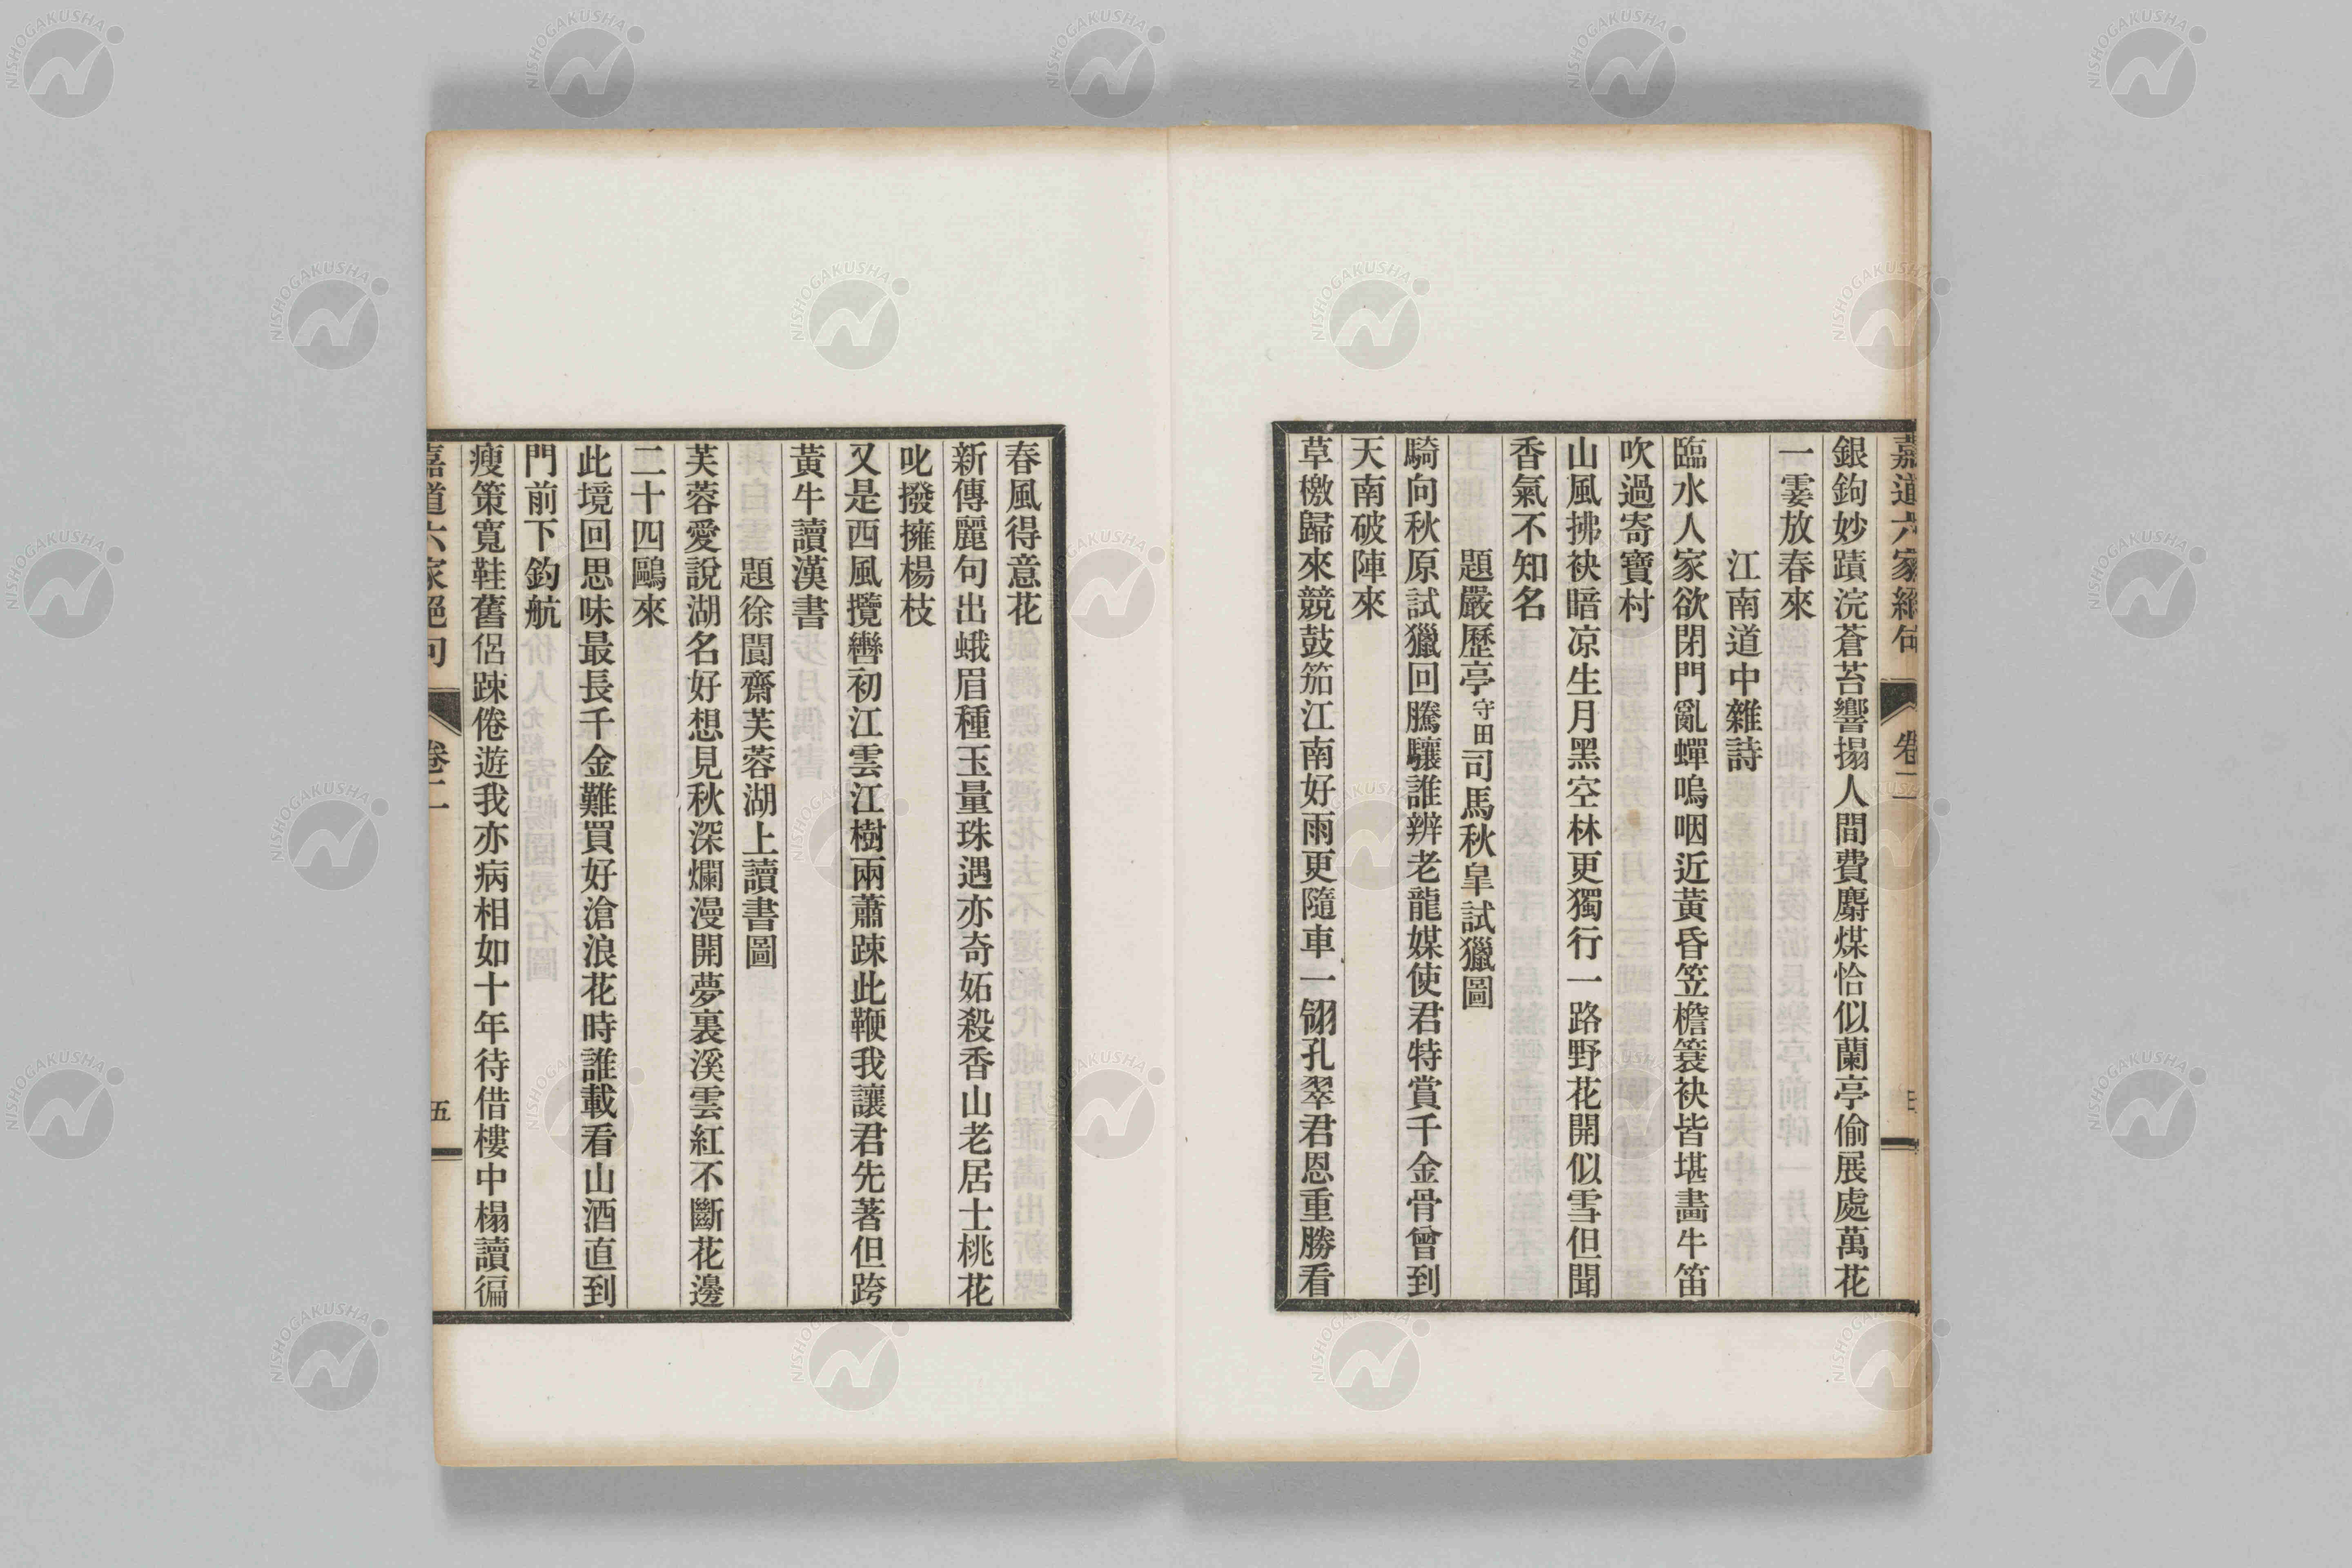 嘉道六家絕句
卷二
銀鉤妙蹟浣蒼苔響搨人間費麝煤恰似蘭亭偷展處萬花
一霎放春來
江南道中雜詩
臨水人家欲閉門亂蟬嗚咽近黃昏笠檐簑袂皆堪畵牛笛
吹過寄寶村
山風拂袂暗凉生月黑空林更獨行一路野花開似雪但聞
香氣不知名
題嚴歷亭守田司馬秋皐試獵圖
騎向秋原試獵回騰驤誰辨老龍媒使君特賞千金骨曾到
天南破陣來
草檄歸來競鼓笳江南好雨更隨車一翎孔翠君恩重勝看
春風得意花
新傳麗句出蛾眉種玉量珠遇亦奇妬殺香山老居士桃花
叱撥擁楊枝
又是西風攬轡初江雲江樹兩蕭踈此鞭我讓君先著但跨
黃牛讀漢書
題徐閬齋芙蓉湖上讀書圖
芙蓉愛說湖名好想見秋深爛漫開夢裏溪雲紅不斷花邊
二十四鷗來
此境回思味最長千金難買好滄浪花時誰載看山酒直到
門前下釣航
瘦策寬鞋舊侶踈倦遊我亦病相如十年待借樓中榻讀徧
嘉道六家絕句
卷二
五
NISHOGAKUSHA